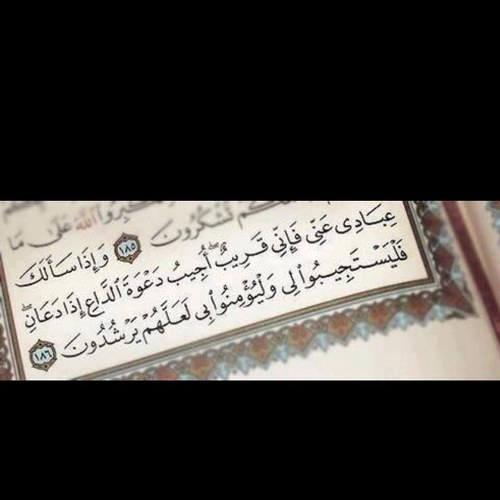 ـكبروا الله على ما
ـكم تشكرون ١٨٥ وَإِذَا سَأَلَكَ
عِبَادِى عَنِّى فَإِنِّى قَرِيبٌ ۖ أُجِيبُ دَعْوَةَ ٱلدَّاعِ إِذَا دَعَانِ ۖ
فَلْيَسْتَجِيبُوا۟ لِى وَلْيُؤْمِنُوا۟ بِى لَعَلَّهُمْ يَرْشُدُونَ ١٨٦